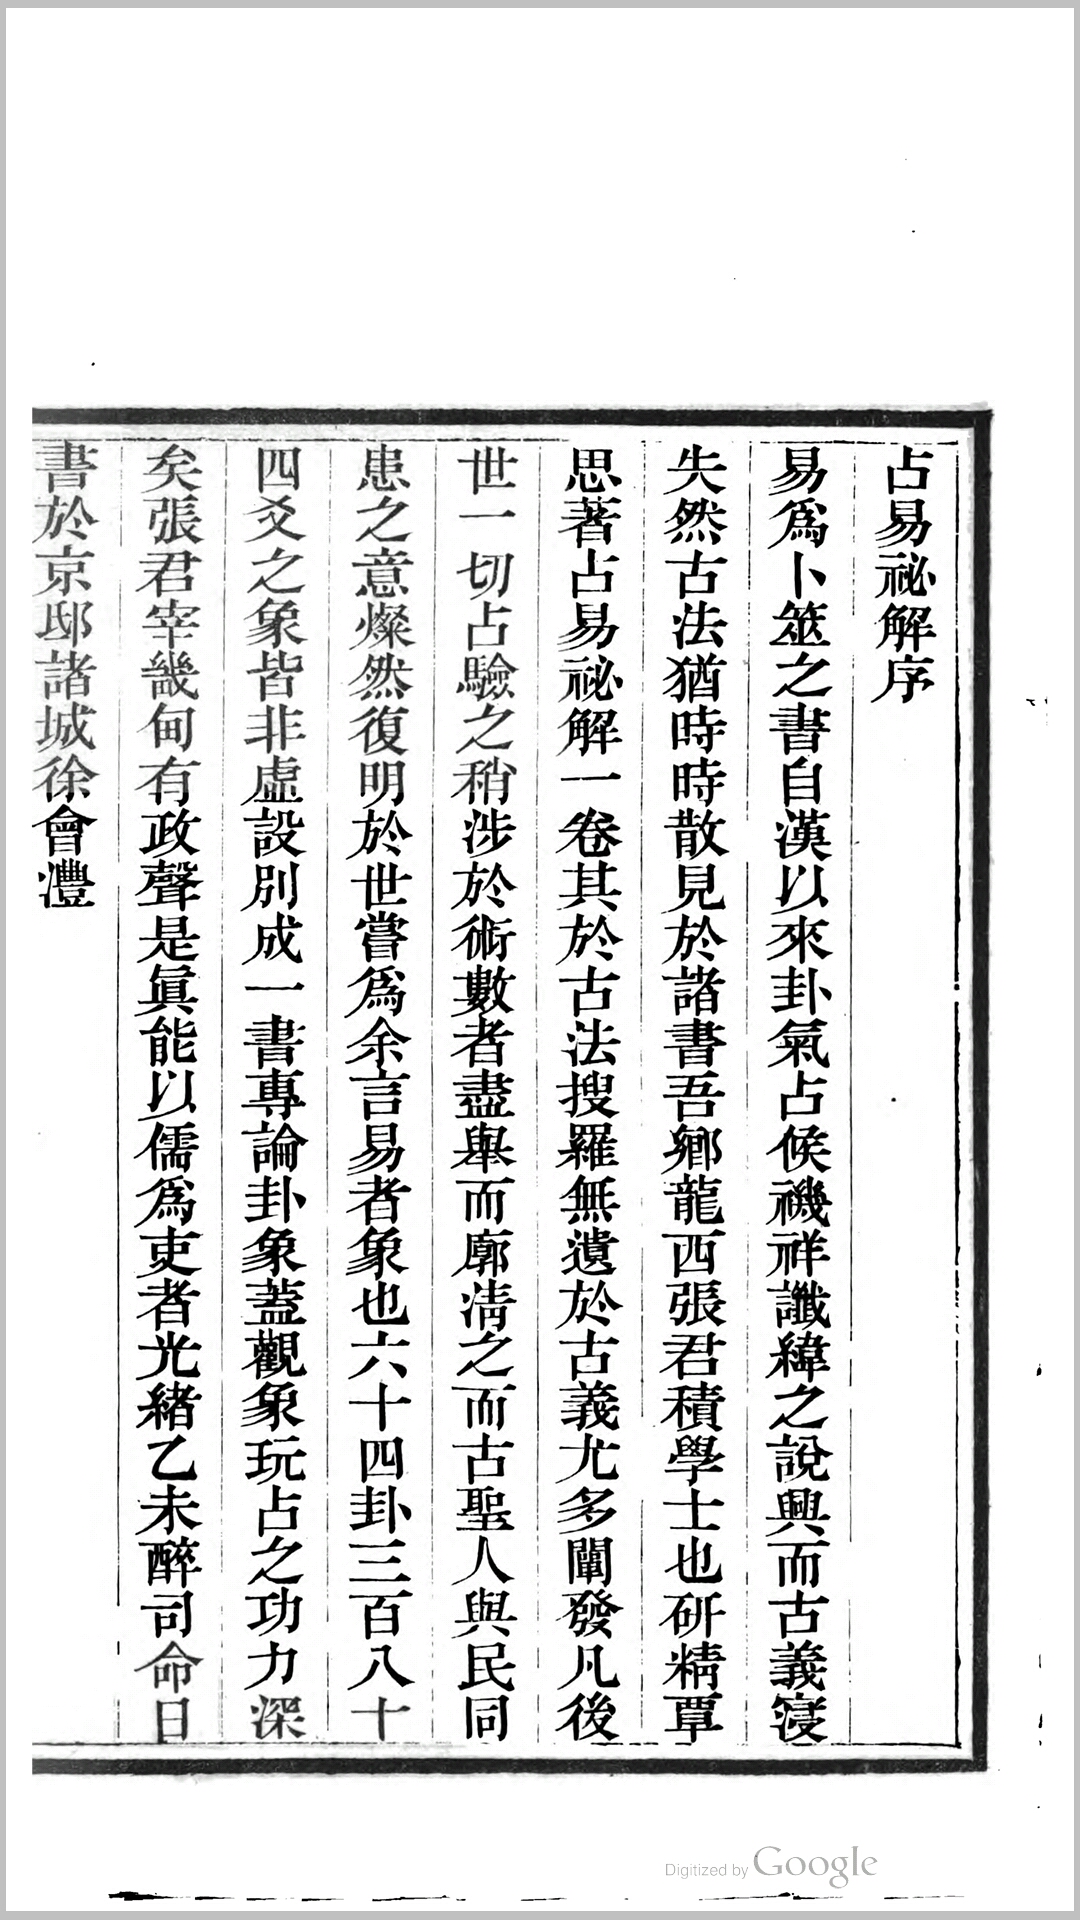 占易祕解序
易爲卜筮之書自漢以來卦氣占候禨祥讖緯之說興而古義寖
失然古法猶時時散見於諸書吾鄉龍西張君積學士也研精覃
思著占易祕解一卷其於古法搜羅無遺於古義尤多闡發凡後
世一切占驗之稍涉於術數者盡舉而廓清之而古聖人與民同
患之意燦然復明於世嘗爲余言易者象也六十四卦三百八十
四爻之象皆非虛設別成一書專論卦象蓋觀象玩占之功力深
矣張君宰畿甸有政聲是眞能以儒爲吏者光緒乙未醉司命日
書於京邸諸城徐會灃
Digitized by Google